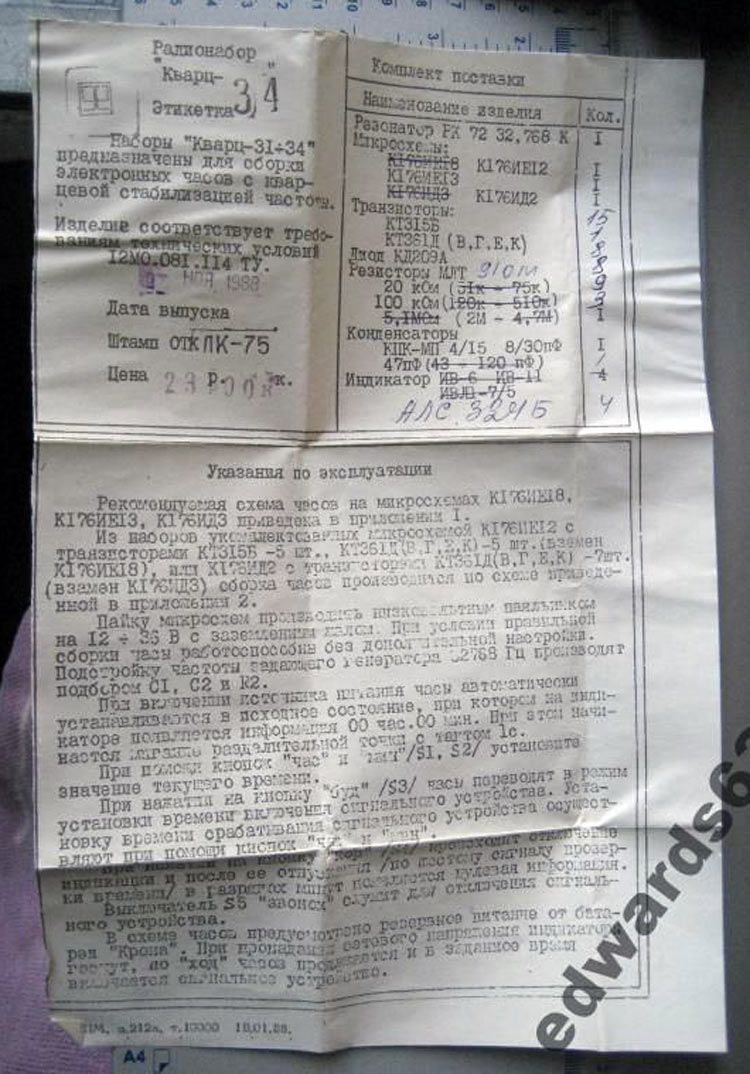 Радионабор
"Кварц-34"
Этикетка
Наборы "Кварц-31÷34"
предназначены для сборки
электронных часов с квар-
цевой стабилизацией частоты.
Изделие соответствует требо-
ваниям технических условий
12МО.081.114 ТУ.
НОЯ 1988
Дата выпуска
Штамп ОТК ЛК-75
Цена 23 Р. 00 к.
Комплект поставки
Наименование изделия Кол.
Резонатор РК 72 32,768 К I
Микросхемы:
К176ИЕ18 К176ИЕ12 I
К176ИЕ13 I
К176ИД3 К176ИД2 I
Транзисторы:
КТ315Б 15
КТ361Д (В,Г,Е,К)
Диод КД209А
Резисторы МЛТ 910м
20 кОм (51к - 75к)
100 кОм (120к - 510к)
5,1МОм (2М - 4,7М) I
Конденсаторы
КПК-МП 4/15 8/30пФ I
47пФ (43 - 120 пФ)
Индикатор ИВ-6 ИВ-11 4
ИВЛ1-7/5
АЛС 324Б 4
Указания по эксплуатации
Рекомендуемая схема часов на микросхемах К176ИЕ18,
К176ИЕ13, К176ИД3 приведена в приложении I.
Из наборов укомплектованных микросхемой К176ИЕ12 с
транзисторами КТ315Б -5 шт., КТ361Д(В,Г,Е,К)-5 шт.(взамен
К176ИЕ18), или К176ИД2 с транзисторами КТ361Д(В,Г,Е,К) -7шт.
(взамен К176ИД3) сборка часов производится по схеме приведе-
нной в приложении 2.
Пайку микросхем производить низковольтным паяльником
на 12 ÷ 36 В с заземленным жалом. При условии правильной
сборки часы работоспособны без дополнительной настройки.
Подстройку частоты задающего генератора 32768 Гц производят
подбором С1, С2 и R2.
При включении источника питания часы автоматически
устанавливаются в исходное состояние, при котором на инди-
каторе появляется информация 00 час.00 мин. При этом начи-
нается мигание разделительной точки с тактом 1с.
При помощи кнопок "час" и "мин"/S1, S2/ установите
значение текущего времени.
При нажатии на кнопку "буд" /S3/ часы переводят в режим
установки времени включения сигнального устройства. Уста-
новку времени срабатывания сигнального устройства осущест-
вляют при помощи кнопок "час" и "мин".
При нажатии на кнопку "кор" происходит отключение
индикации и после ее отпускания /по шестому сигналу провер-
ки времени/ в разрядах минут появляется нулевая информация.
Выключатель S5 "звонок" служит для отключения сигналь-
ного устройства.
В схеме часов предусмотрено резервное питание от бата-
реи "Крона". При пропадании сетевого напряжения индикаторы
гаснут, но "ход" часов продолжается и в заданное время
включается сигнальное устройство.
з.212а, т.10000 18.01.88.
A4
edwards63